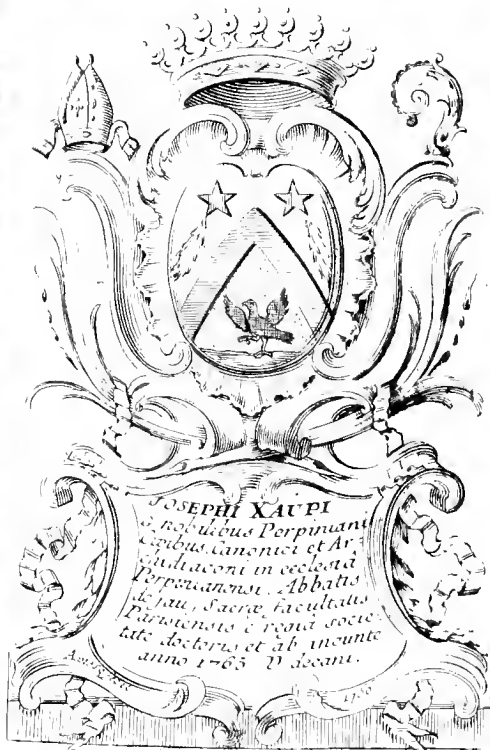 JOSEPHI XAUPI
è nobilibus Perpiniani
Civibus, Canonici et Ar-
chidiaconi in ecclesiâ
Perpinianensi, Abbatis
de Jau, Sacræ facultatis
Parisiensis è regiâ socie-
tate doctoris et ab ineunte
anno 1765 decani.